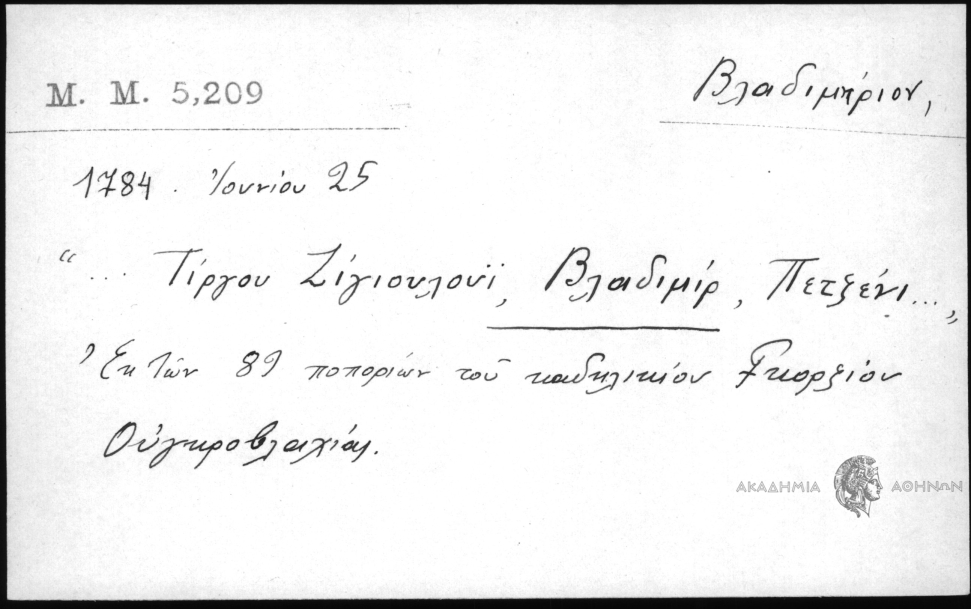 Μ. Μ. 5,209
Βλαδιμήριον,
1784. Ἰουνίου 25
“... Τίργου Ζίγιουλουϊ, Βλαδιμίρ, Πετξένι...„
Ἐκ τῶν 89 ποποριών τοῦ καδηλικίου Γκορξίου
Οὐγκροβλαχίας.
ΑΚΑΔΗΜΙΑ ΑΘΗΝΩΝ